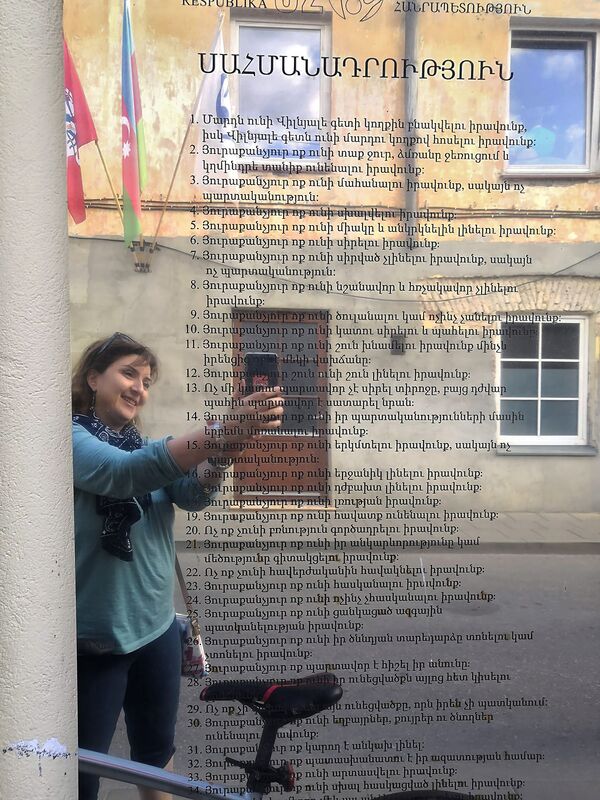 RESPUBLIKA UŽ
ՀԱՆՐԱՊԵՏՈՒԹՅՈՒՆ
ՍԱՀՄԱՆԱԴՐՈՒԹՅՈՒՆ
1. Մարդն ունի Վիլնյալե գետի կողքին բնակվելու իրավունք,
իսկ Վիլնյալե գետն ունի մարդու կողքով հոսելու իրավունք:
2. Յուրաքանչյուր ոք ունի տաք ջուր, ձմռանը ջեռուցում և
կղմինդրե տանիք ունենալու իրավունք:
3. Յուրաքանչյուր ոք ունի մահանալու իրավունք, սակայն ոչ
պարտականություն:
4. Յուրաքանչյուր ոք ունի սխալվելու իրավունք:
5. Յուրաքանչյուր ոք ունի միակը և անկրկնելին լինելու իրավունք:
6. Յուրաքանչյուր ոք ունի սիրելու իրավունք:
7. Յուրաքանչյուր ոք ունի սիրված չլինելու իրավունք, սակայն
ոչ պարտականություն:
8. Յուրաքանչյուր ոք ունի նշանավոր և հռչակավոր չլինելու
իրավունք:
9. Յուրաքանչյուր ոք ունի ծուլանալու կամ ոչինչ չանելու իրավունք:
10. Յուրաքանչյուր ոք ունի կատու սիրելու և պահելու իրավունք:
11. Յուրաքանչյուր ոք ունի շուն խնամելու իրավունք մինչև
իրենցից որևէ մեկի վախճանը:
12. Յուրաքանչյուր շուն ունի շուն լինելու իրավունք:
13. Ոչ մի կատու պարտավոր չէ սիրել տիրոջը, բայց դժվար
պահին պարտավոր է սատարել նրան:
14. Յուրաքանչյուր ոք ունի իր պարտականությունների մասին
երբեմն մոռանալու իրավունք:
15. Յուրաքանչյուր ոք ունի երկմտելու իրավունք, սակայն ոչ
պարտականություն:
16. Յուրաքանչյուր ոք ունի երջանիկ լինելու իրավունք:
17. Յուրաքանչյուր ոք ունի դժբախտ լինելու իրավունք:
18. Յուրաքանչյուր ոք ունի լռության իրավունք:
19. Յուրաքանչյուր ոք ունի հավատք ունենալու իրավունք:
20. Ոչ ոք չունի բռնություն գործադրելու իրավունք:
21. Յուրաքանչյուր ոք ունի իր անկարևորությունը կամ
մեծությունը գիտակցելու իրավունք:
22. Ոչ ոք չունի հավերժականին հավակնելու իրավունք:
23. Յուրաքանչյուր ոք ունի հասկանալու իրավունք:
24. Յուրաքանչյուր ոք ունի ոչինչ չհասկանալու իրավունք:
25. Յուրաքանչյուր ոք ունի ցանկացած ազգային
պատկանելության իրավունք:
26. Յուրաքանչյուր ոք ունի իր ծննդյան տարեդարձը տոնելու կամ
չտոնելու իրավունք:
Յուրաքանչյուր ոք պարտավոր է հիշել իր անունը:
28. Յուրաքանչյուր ոք ունի իր ունեցվածքն այլոց հետ կիսելու
29. Ոչ ոք չի ունեցվածքը, որն իրեն չի պատկանում:
30. Յուրաքանչյուր ոք ունի եղբայրներ, քույրեր ու ծնողներ
ունենալու իրավունք:
31. Յուրաքանչյուր ոք կարող է անկախ լինել:
32. Յուրաքանչյուր ոք պատասխանատու է իր ազատության համար:
33. Յուրաքանչյուր ոք ունի արտասվելու իրավունք:
34. Յուրաքանչյուր ոք ունի սխալ հասկացված լինելու իրավունք: